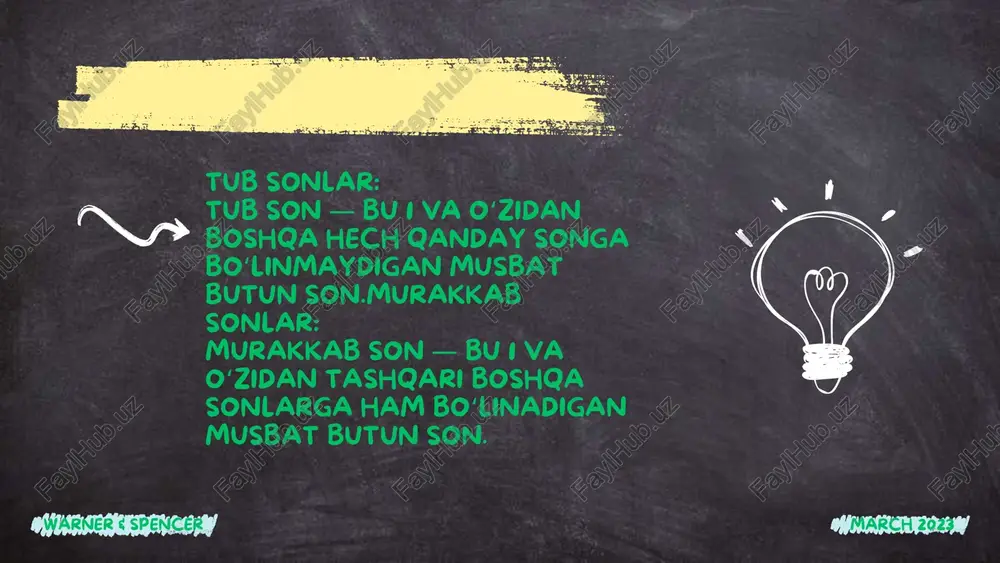 TUB SONLAR:
TUB SON — BU 1 VA O‘ZIDAN
BOSHQA HECH QANDAY SONGA
BO‘LINMAYDIGAN MUSBAT
BUTUN SON.MURAKKAB
SONLAR:
MURAKKAB SON — BU 1 VA
O‘ZIDAN TASHQARI BOSHQA
SONLARGA HAM BO‘LINADIGAN
MUSBAT BUTUN SON.
WARNER & SPENCER
MARCH 2023
FaylHub.uz